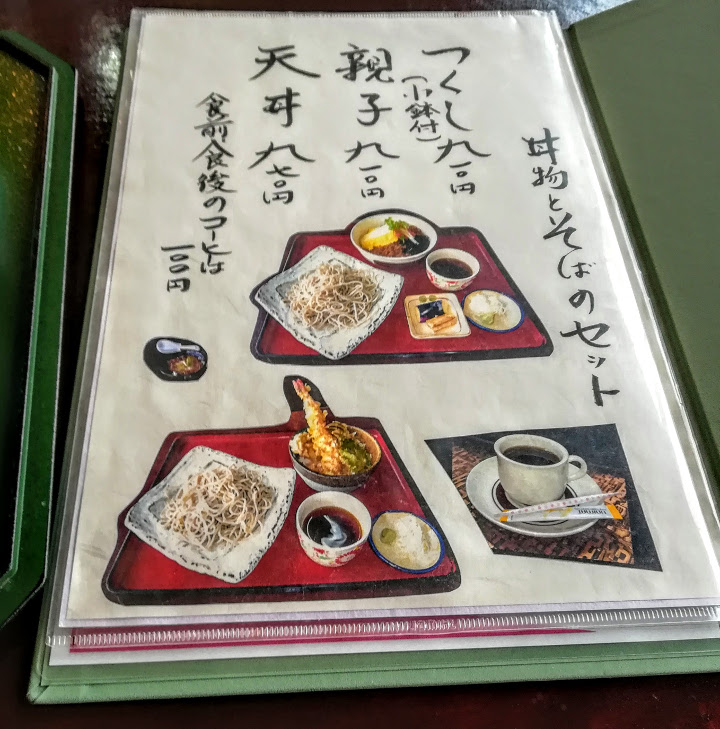 丼物とそばのセット
つくし 九一〇円
(小鉢付)
親子 九一〇円
天丼 九七〇円
食前食後のコーヒーは
一〇〇円